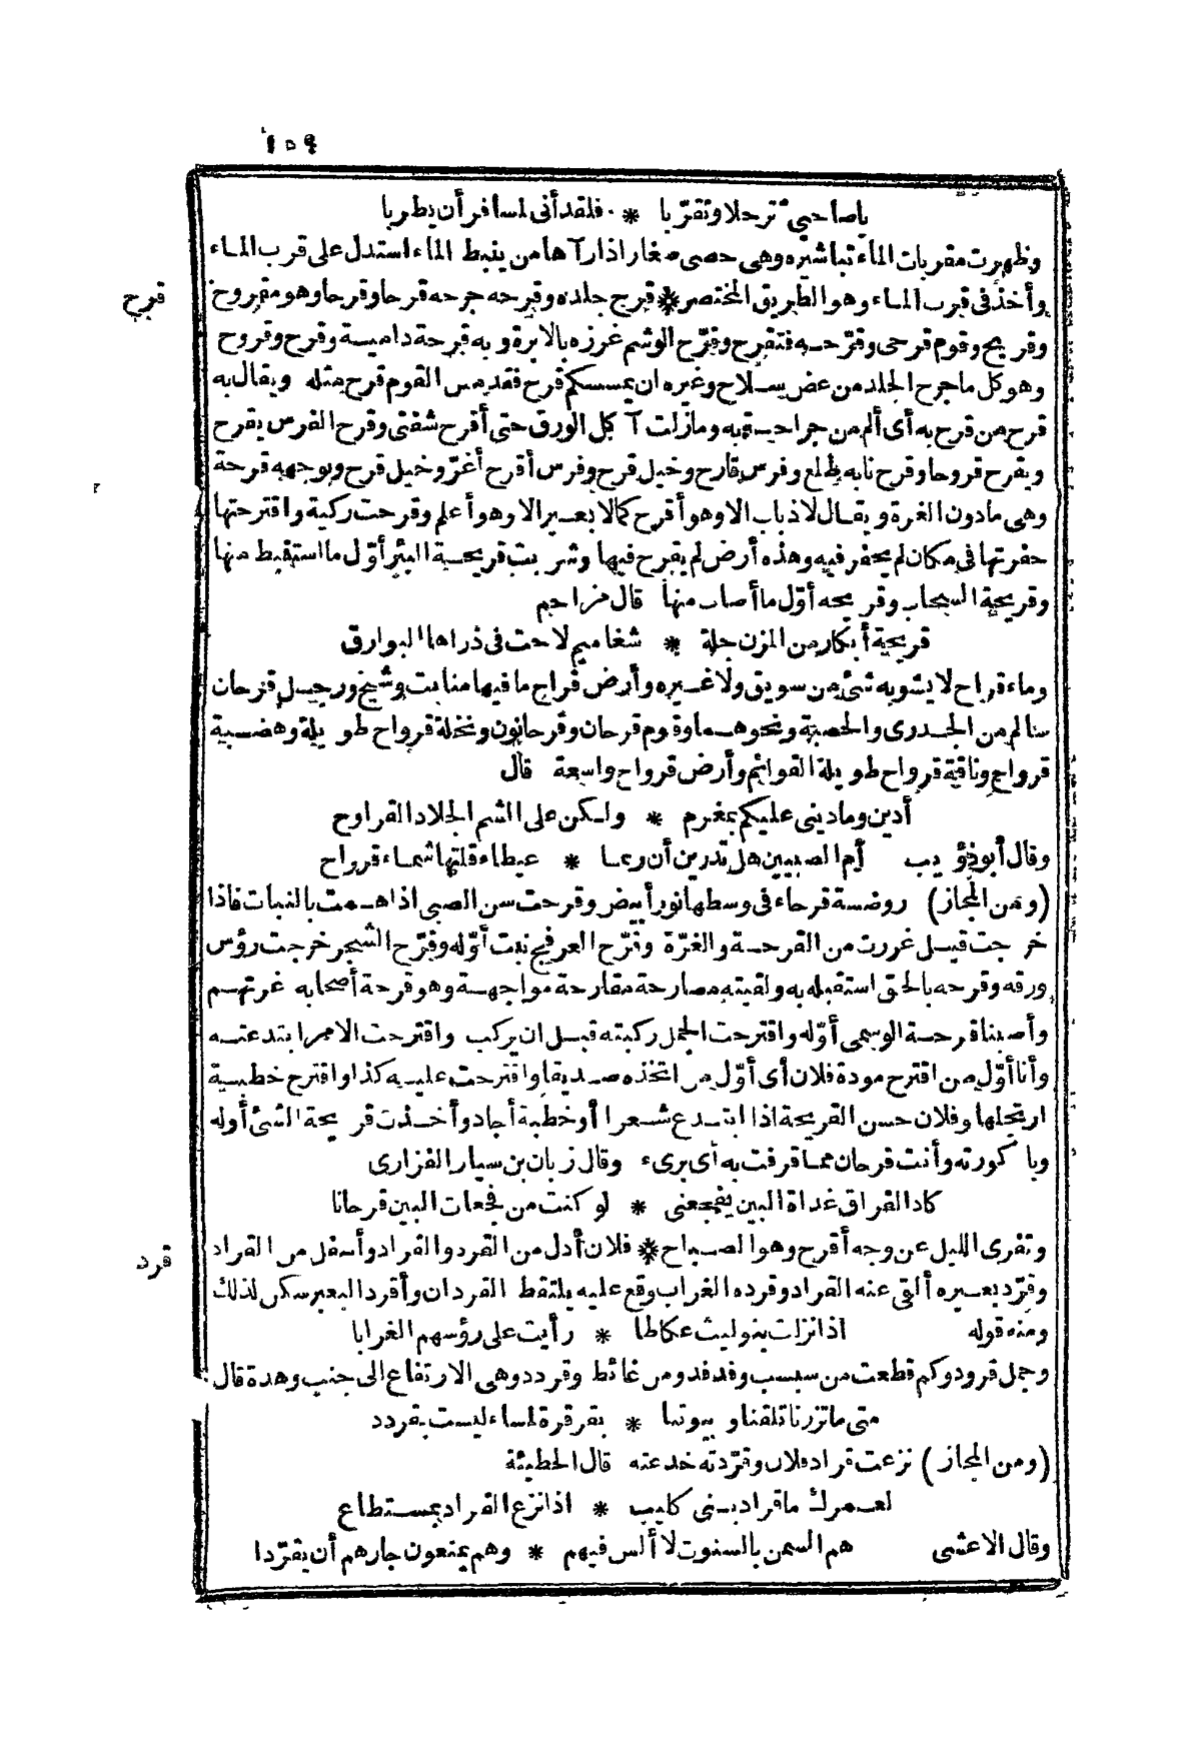 ١٥٩
يا صاحبيّ ترحلا وتقرّبا * فلقد أنى لمسافر أن يطربا
وظهرت مقربات الماء تباشيره وهى حصى صغار اذا رآها من ينبط الماء استدل على قرب الماء
قرح
وأخذ فى قرب الماء وهو الطريق المختصر * قرح جلده وقرحه جرحه قرحا وقرحا وهو مقروح
وقريح وقوم قرحى وقرّحه فتقرح وقرّح الوشم غرزه بالابرة وبه قرحة دامية وقرح وقروح
وهو كل ما جرح الجلد من عض سلاح وغيره ان يمسسكم قرح فقد مس القوم قرح مثله ويقال به
قرح من قرح به أى ألم من جراحة به وما زلت آكل الورق حتى أقرح شفتى وقرح الفرس يقرح
ويقرح قروحا وقرح نابه طلع وفرس قارح وخيل قرح وفرس أقرح أغرّ وخيل قرح وبوجهه قرحة
وهى ما دون الغرة ويقال لا ذباب الا وهو أقرح كما لا بعير الا وهو أعلم وقرحت ركية واقترحتها
حفرتها فى مكان لم يحفر فيه وهذه أرض لم يقرح فيها وشربت قريحة البئر أوّل ما استنبط منها
وقريحة السحاب وقريحه أوّل ما أصاب منها قال مزاحم
قريحة أبكار من المزن جلة * شغاميم لاحت فى ذراها البوارق
وماء قراح لا يشوبه شئ من سويق ولا غيره وأرض قراح ما فيها منابت وشيخ ورجل قرحان
سالم من الجدرى والحصبة ونحوهما وقوم قرحان وقرحانون ونخلة قرواح طويلة وهضبة
قرواح وناقة قرواح طويلة القوائم وأرض قرواح واسعة قال
أدين وما دينى عليكم بمغرم * ولكن على الشم الجلاد القراوح
وقال أبو ذؤيب أم الصبيين هل تدرين أن ربما * عيطاء قلتها شماء قرواح
(ومن المجاز) روضة قرحاء فى وسطها نور أبيض وقرحت سن الصبى اذا همت بالنبات فاذا
خرجت قيل غررت من القرحة والغرّة وقرّح العرفج نبت أوّله وقرّح الشجر خرجت رؤس
ورقه وقرحه بالحق استقبله به ولقيته مصارحة مقارحة مواجهة وهو قرحة أصحابه غرتهم
وأصبنا قرحة الوسمى أوّله واقترحت الجمل ركبته قبل ان يركب واقترحت الامر ابتدعته
وأنا أوّل من اقترح مودة فلان أى أوّل من اتخذه صديقا واقترحت عليه كذا واقترح خطبة
ارتجلها وفلان حسن القريحة اذا ابتدع شعرا أو خطبة أجاد وأخذت قريحة الشئ أوله
وباكورته وأنت قرحان مما قرفت به أى برىء وقال زبان بن سيار الفزارى
كاد الفراق غداة البين يفجعنى * لو كنت من فجعات البين قرحانا
وتفرى الليل عن وجه أقرح وهو الصباح * فلان أذل من القرد والقراد وأسفل من القراد
قرد
وقرّد بعيره ألقى عنه القراد وقرده الغراب وقع عليه يلتقط القردان وأقرد البعير سكن لذلك
ومنه قوله اذا نزلت بنو ليث عكاظا * رأيت على رؤسهم الغرابا
وجمل قرود وكم قطعت من سبسب وفدفد ومن غائط وقردد وهى الارتفاع الى جنب وهدة قال
متى ما تزرنا تلقنا وبيوتنا * بقرقرة ملساء ليست بقردد
(ومن المجاز) نزعت قراد فلان وقرّدته خدعته قال الحطيئة
لعمرك ما قراد بنى كليب * اذا نزع القراد بمستطاع
وقال الاعشى هم السمن بالسنوت لا ألس فيهم * وهم يمنعون جارهم أن يقرّدا